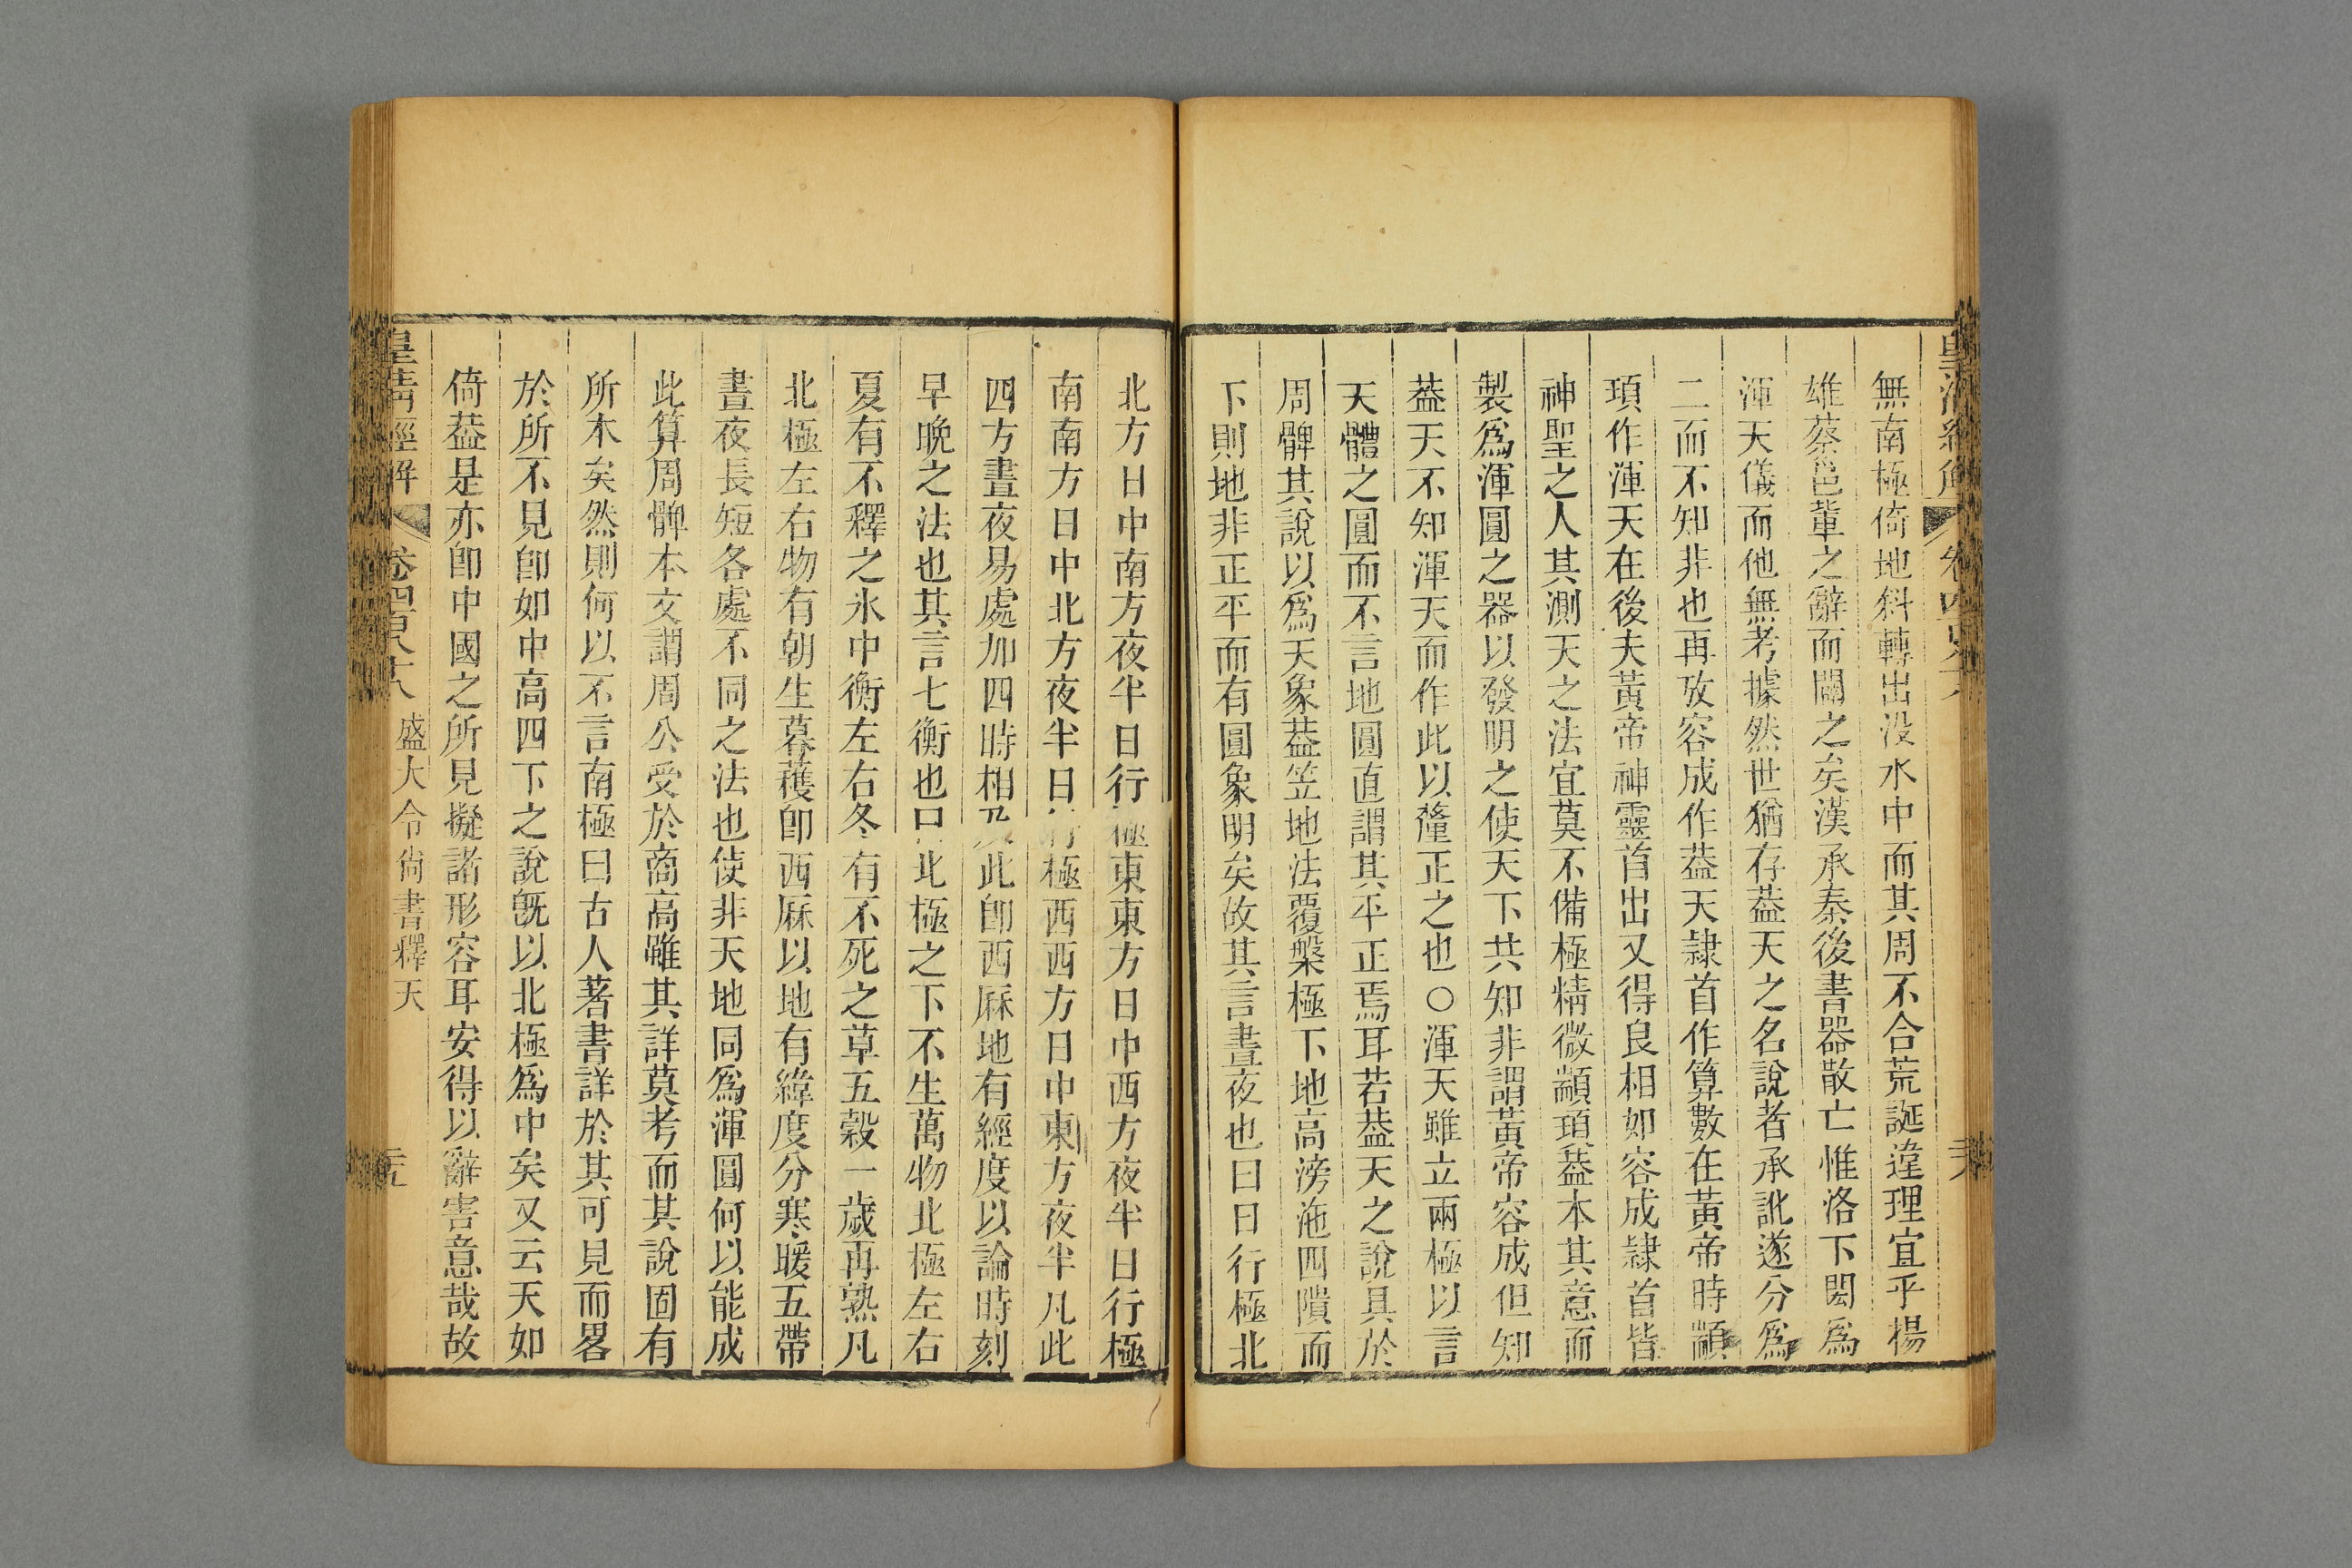 無南極倚地斜轉出没水中而其周不合荒誕違理宜乎楊
雄蔡邕軰之辭而闢之矣漢承秦後書器散亡惟洛下閎爲
渾天儀而他無考據然世猶存葢天之名說者承訛遂分爲
二而不知非也再攷容成作葢天隷首作算數在黃帝時顓
頊作渾天在後夫黃帝神靈首出又得良相如容成隷首皆
神聖之人其測天之法宜莫不備極精微顓頊葢本其意而
製爲渾圓之器以發明之使天下共知非謂黃帝容成但知
葢天不知渾天而作此以釐正之也○渾天雖立兩極以言
天體之圓而不言地圓直謂其平正焉耳若葢天之說具於
周髀其說以爲天象葢笠地法覆槃極下地高滂沲四隤而
下則地非正平而有圓象明矣故其言晝夜也曰日行極北
北方日中南方夜半日行極東東方日中西方夜半日行極
南南方日中北方夜半日行極西西方日中東方夜半凡此
四方晝夜易處加四時相及此卽西厤地有經度以論時刻
早晚之法也其言七衡也曰北極之下不生萬物北極左右
夏有不釋之氷中衡左右冬有不死之草五穀一歲再熟凡
北極左右物有朝生暮穫卽西厤以地有緯度分寒暖五帶
晝夜長短各處不同之法也使非天地同爲渾圓何以能成
此算周髀本文謂周公受於商高雖其詳莫考而其說固有
所木矣然則何以不言南極曰古人著書詳於其可見而畧
於所不見卽如中高四下之說旣以北極爲中矣又云天如
倚葢是亦卽中國之所見擬諸形容耳安得以辭害意哉故
皇淸經解 卷四百十八 盛大令尙書釋天